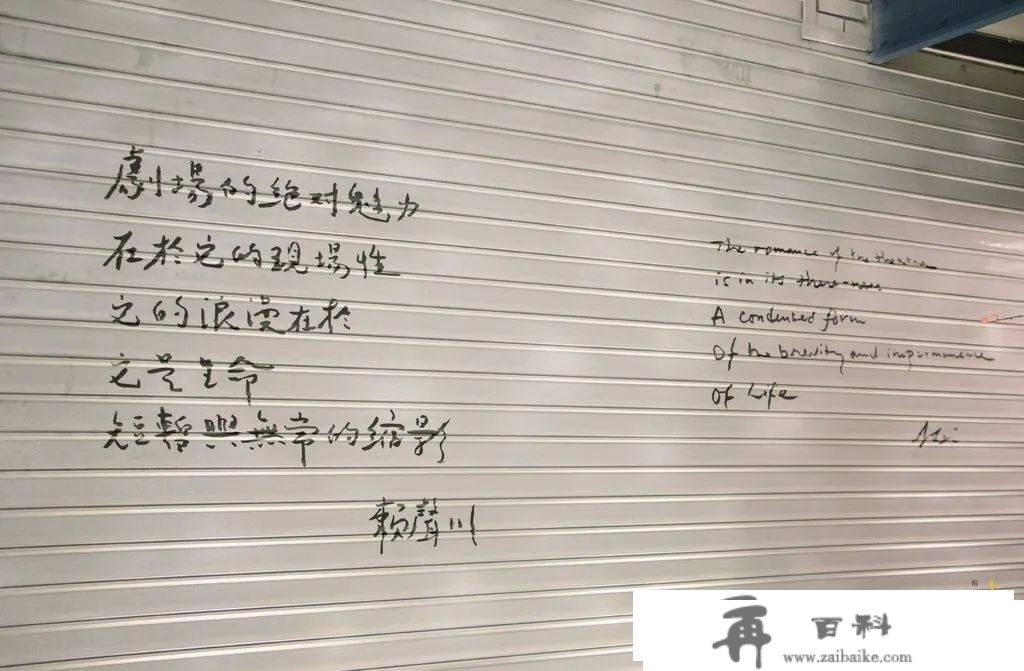 劇場的绝对魅力
在於它的現場性
它的浪漫在於
它是生命
短暫與無常的縮影
賴聲川
The romance of the theatre
is in its there-ness
A condensed form
Of the brevity and impermanence
Of Life
再 百科
www.zaibaike.com